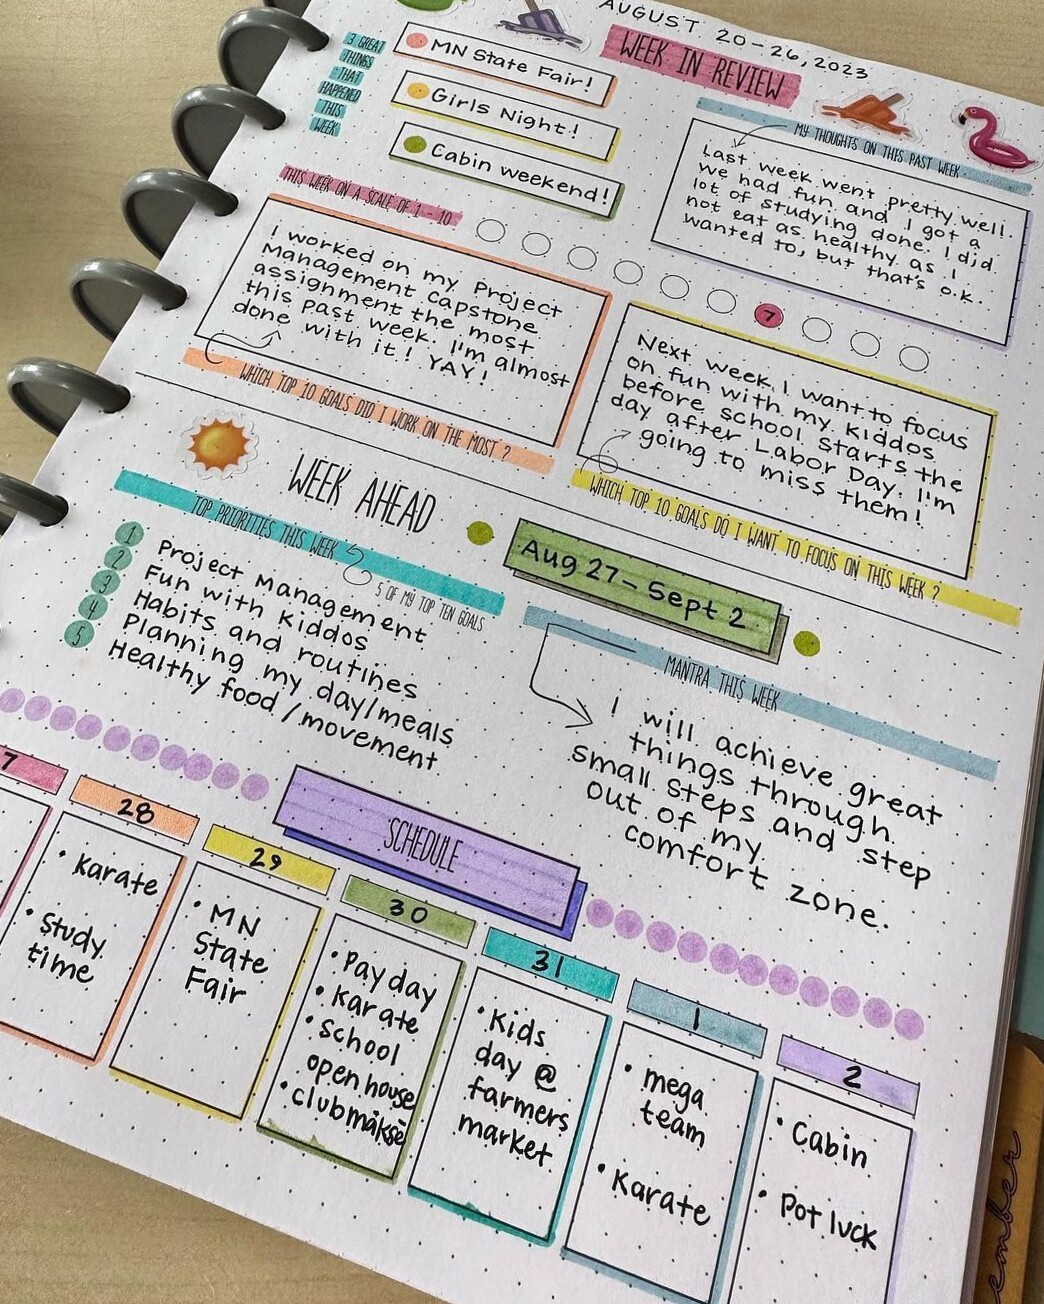 AUGUST 20-26, 2023
WEEK IN REVIEW
3 GREAT
THINGS
THAT
HAPPENED
THIS
WEEK
MN State Fair!
Girls Night!
Cabin weekend!
MY THOUGHTS ON THIS PAST WEEK
Last week went pretty well.
We had fun and I got a
lot of studying done. I did
not eat as healthy as I
wanted to, but that's o.k.
THIS WEEK ON A SCALE OF 1 - 10
7
I worked on my Project
Management Capstone
assignment the most
this past week. I'm almost
done with it! YAY!
WHICH TOP 10 GOALS DID I WORK ON THE MOST?
Next week, I want to focus
on fun with my kiddos
before school starts the
day after Labor Day. I'm
going to miss them!
WHICH TOP 10 GOALS DO I WANT TO FOCUS ON THIS WEEK?
WEEK AHEAD
Aug 27 - Sept 2
TOP PRIORITIES THIS WEEK
5 OF MY TOP TEN GOALS
1 Project Management
2 Fun with kiddos
3 Habits and routines
4 Planning my day/meals
5 Healthy food/movement
MANTRA THIS WEEK
I will achieve great
things through
small steps and step
out of my
comfort zone.
SCHEDULE
7
28
• Karate
• Study
time
29
• MN
State
Fair
30
• Pay day
• Karate
• School
open house
• clubmäksē
31
• Kids
day @
farmers
market
1
• mega
team
• Karate
2
• Cabin
• Pot luck
ember